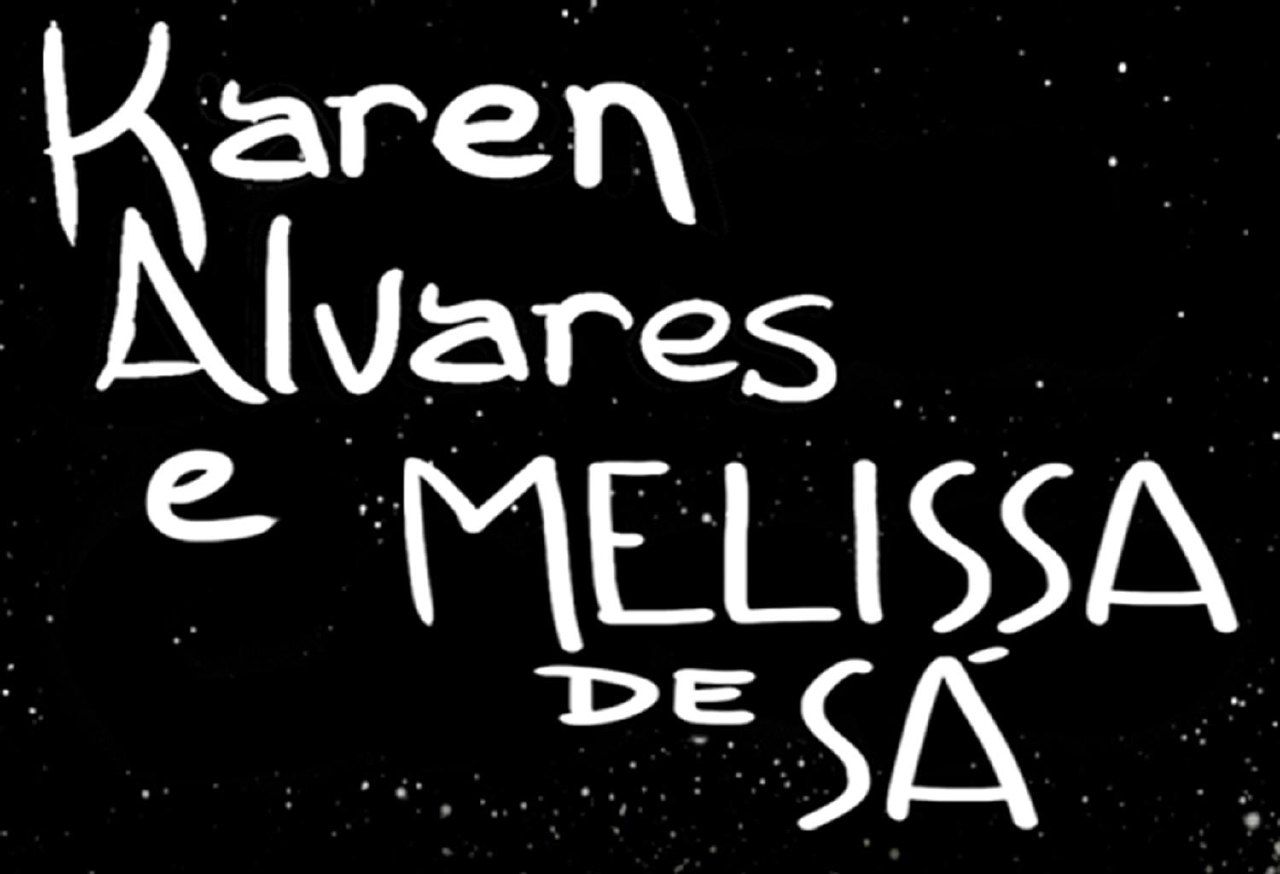 Karen
Alvares
e MELISSA
DE SÁ